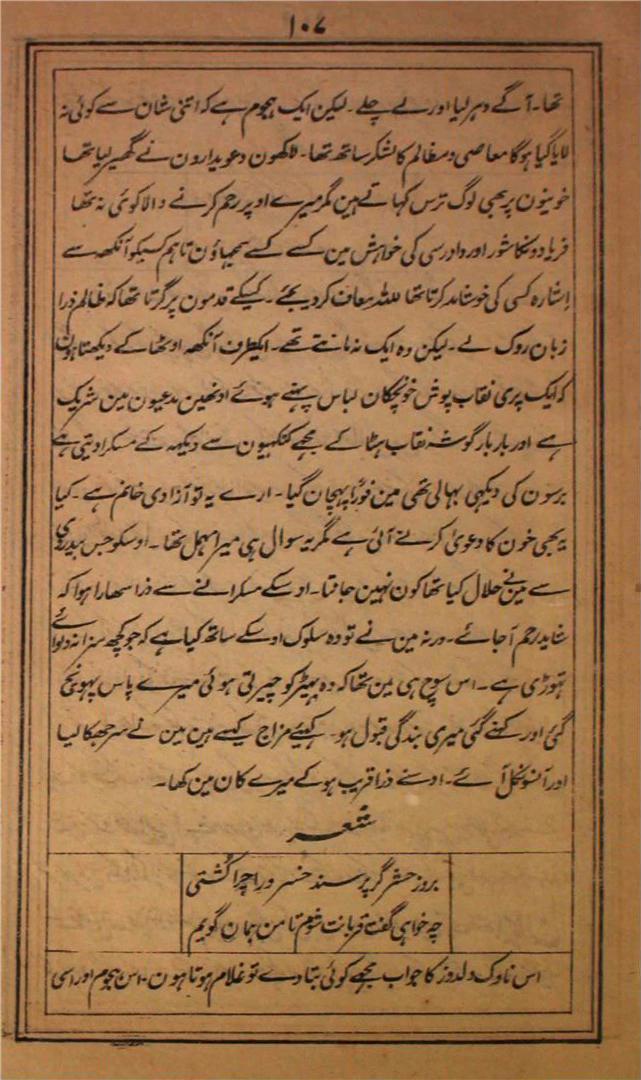 ۱۰۷
تھا۔ آگے دہر لیا اور لے چلے۔ لیکن ایک ہجوم ہے کہ اتنی شان سے کوئی نہ
لایا گیا ہوگا معاصی و مظالم کا لشکر ساتھ تھا۔ لاکھون دعویدارون نے گھیر لیا تھا
خونیون پر بھی لوگ ترس کہاتے ہین مگر میرے اوپر رحم کرنے والا کوئی نہ تھا
فریادونکا شور اور دادرسی کی خواہش مین کسے کسے سمجہاؤن تاہم کسیکو آنکھ سے
اِشارہ کسی کی خوشامد کرتا تھا للہ معاف کردیجئے۔ کسیکے قدمون پر گرتا تھا کہ ظالم ذرا
زبان روک لے۔ لیکن وہ ایک نہ مانتے تھے۔ ایکطرف آنکھ اوٹھا کے دیکھتا ہون
کہ ایک پری نقاب پوش خونچکان لباس پہنے ہوئے اونھین مدعیون مین شریک
ہے اور بار بار گوشۂ نقاب ہٹا کے مجہے کنکہیون سے دیکہہ کے مسکرا دیتی ہے
برسون کی دیکہی بہالی تھی مین فورًا پہچان گیا۔ ارے یہ تو آزادی خانم ہے۔ کیا
یہ بھی خون کا دعویٰ کرنے آئی ہے مگر یہ سوال ہی میرا مہمل تھا۔ اوسکو جس بیدردی
سے مین نے حلال کیا تھا کون نہین جانتا۔ اوسکے مسکرانے سے ذرا سہارا ہوا کہ
شاید رحم آجائے۔ ورنہ مین نے تو وہ سلوک اوسکے ساتھ کیا ہے کہ جو کچھ سزا نہ دلوائے
تہوڑی ہے۔ اس سوچ ہی مین تھا کہ وہ بھیڑ کو چیرتی ہوئی میرے پاس پہونچ
گئی اور کہنے لگی میری بندگی قبول ہو۔ کہیئے مزاج کیسے ہین مین نے سر جھکا لیا
اور آنسو نکل آئے۔ اوسنے ذرا قریب ہوکے میرے کان مین کہا۔
شعر
بروز حشر گر پرسند خسرو را چرا کُشتی
چہ خواہی گفت قربانت شوم تا من ہمان گویم
اس ناوک دلدوز کا جواب مجہے کوئی بتا دے تو غلام ہوتا ہون۔ اس ہجوم اور اسی